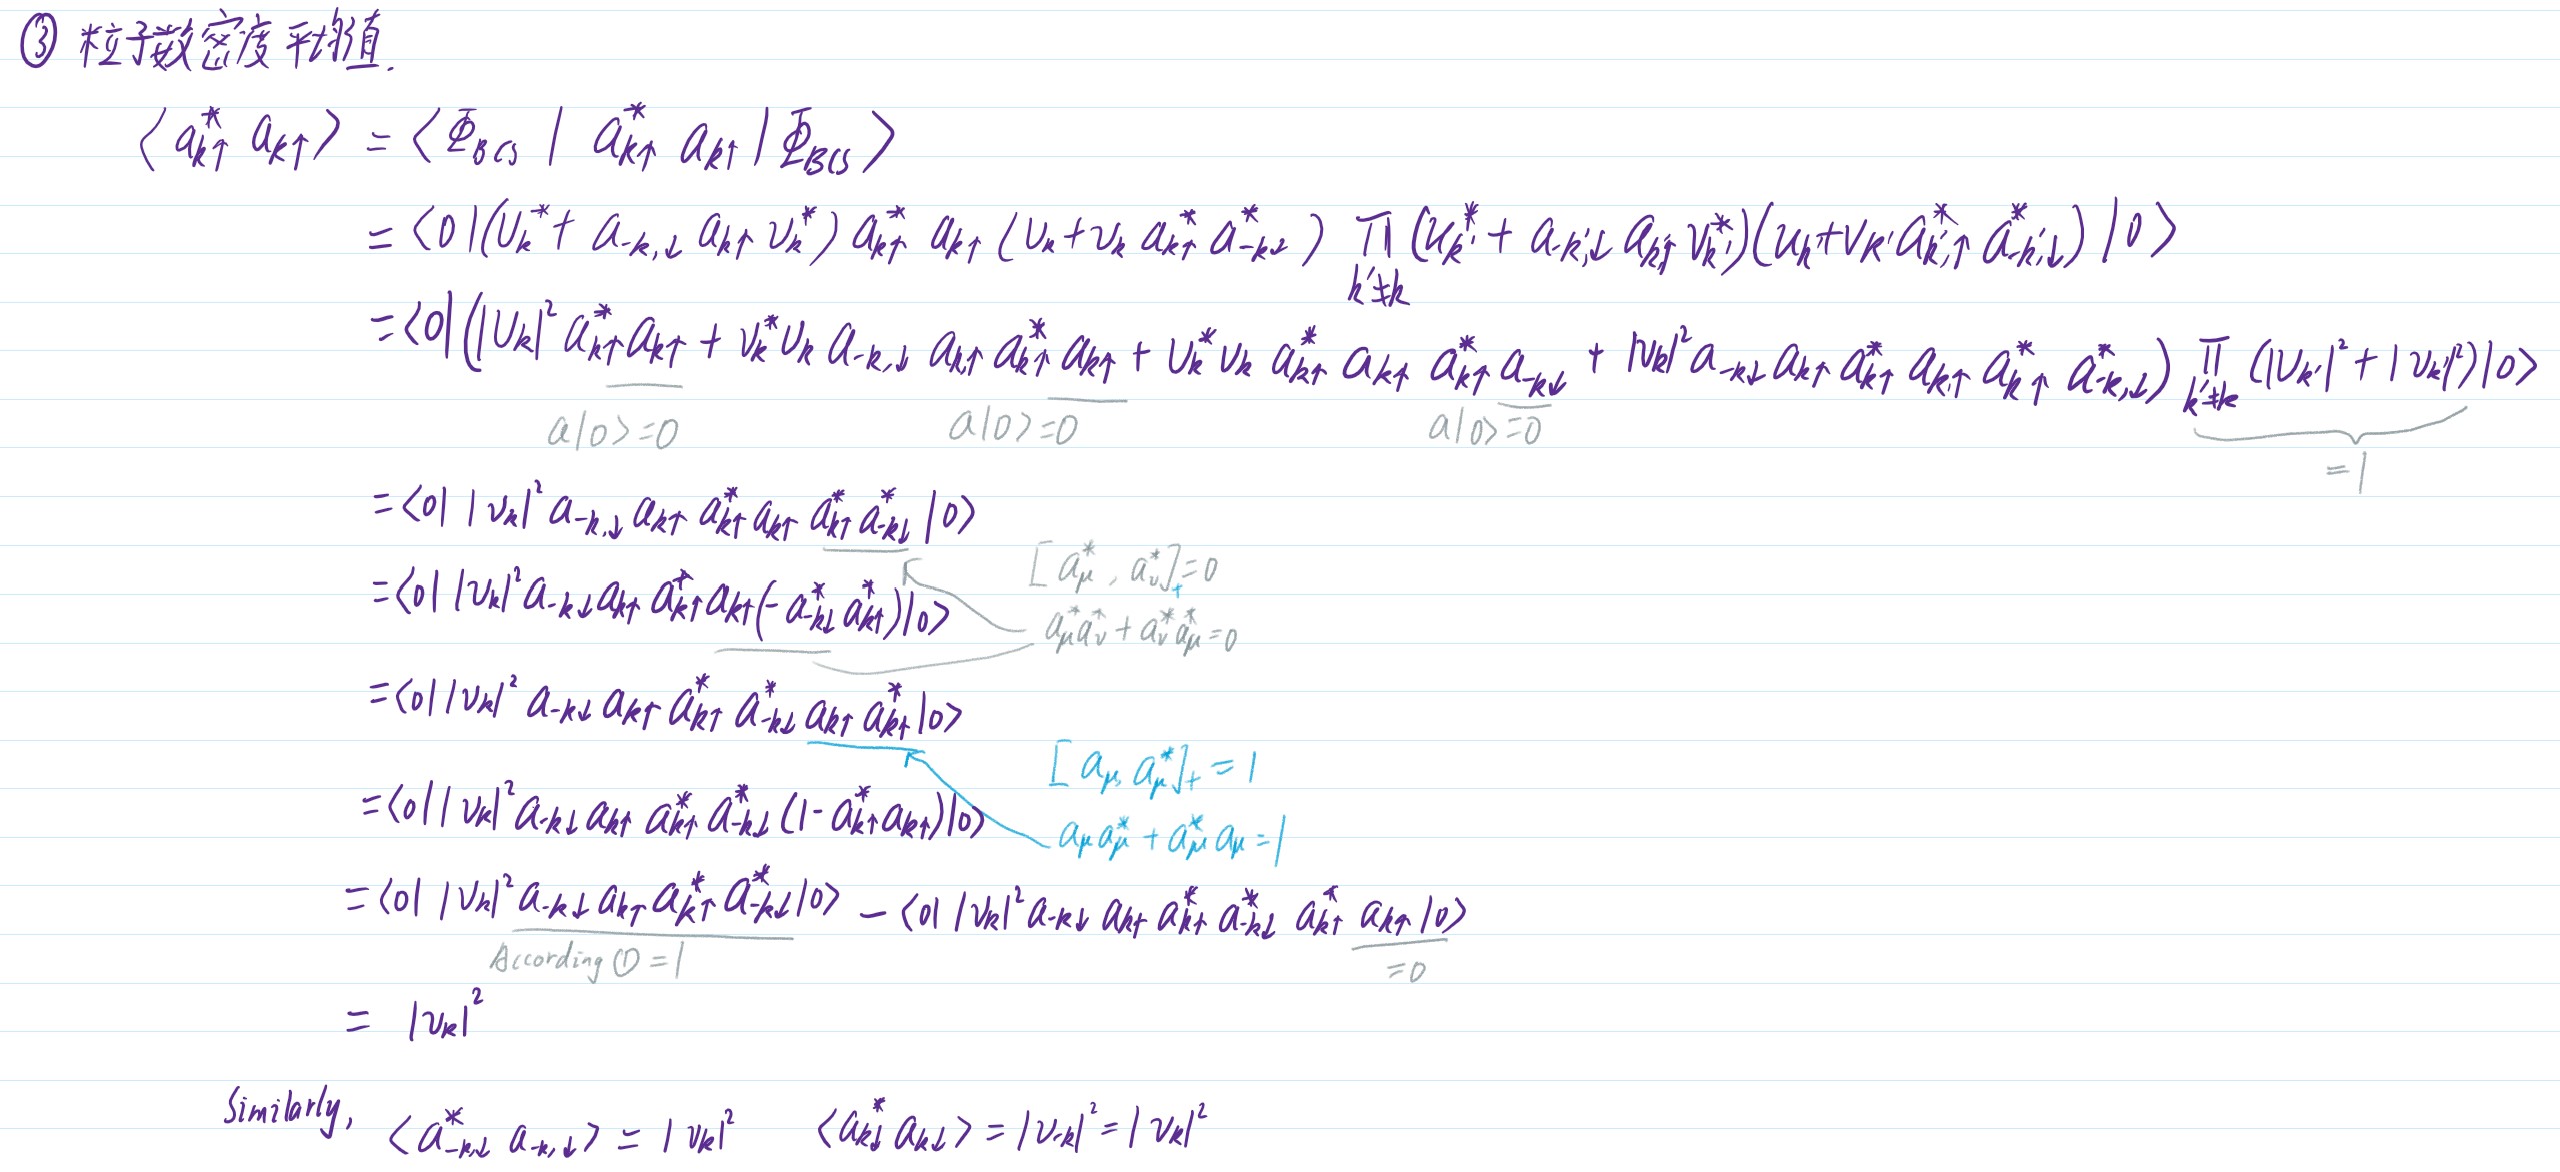 ③ 粒子数密度平均值.
⟨a*_{k↑} a_{k↑}⟩ = ⟨Φ_{BCS} | a*_{k↑} a_{k↑} | Φ_{BCS}⟩
= ⟨0|(u_k^* + a_{-k,↓} a_{k↑} v_k^*) a*_{k↑} a_{k↑} (u_k + v_k a*_{k↑} a*_{-k↓}) ∏_{k'≠k} (u_{k'}^* + a_{-k',↓} a_{k',↑} v_{k'}^*)(u_{k'} + v_{k'} a*_{k',↑} a*_{-k',↓}) |0⟩
= ⟨0| (|u_k|² a*_{k↑} a_{k↑} + v_k^* u_k a_{-k,↓} a_{k,↑} a*_{k↑} a_{k↑} + u_k^* v_k a*_{k↑} a_{k↑} a*_{k↑} a_{-k↓} + |v_k|² a_{-k↓} a_{k↑} a*_{k↑} a_{k,↑} a*_{k↑} a*_{-k,↓}) ∏_{k'≠k} (|u_{k'}|² + |v_{k'}|²) |0⟩
a|0⟩=0 a|0⟩=0 a|0⟩=0 =1
= ⟨0| |v_k|² a_{-k,↓} a_{k↑} a*_{k↑} a_{k↑} a*_{k↑} a*_{-k↓} |0⟩
[a*_μ, a*_ν]_+ = 0
= ⟨0| |v_k|² a_{-k↓} a_{k↑} a*_{k↑} a_{k↑} (- a*_{-k↓} a*_{k↑}) |0⟩
a*_μ a*_ν + a*_ν a*_μ = 0
= ⟨0| |v_k|² a_{-k↓} a_{k↑} a*_{k↑} a*_{-k↓} a_{k↑} a*_{k↑} |0⟩
[a_μ, a*_μ]_+ = 1
= ⟨0| |v_k|² a_{-k↓} a_{k↑} a*_{k↑} a*_{-k↓} (1 - a*_{k↑} a_{k↑}) |0⟩
a_μ a*_μ + a*_μ a_μ = 1
= ⟨0| |v_k|² a_{-k↓} a_{k↑} a*_{k↑} a*_{-k↓} |0⟩ - ⟨0| |v_k|² a_{-k↓} a_{k↑} a*_{k↑} a*_{-k↓} a*_{k↑} a_{k↑} |0⟩
According ① = 1 =0
= |v_k|²
Similarly, ⟨a*_{-k,↓} a_{-k,↓}⟩ = |v_k|² ⟨a*_{k↓} a_{k↓}⟩ = |v_{-k}|² = |v_k|²